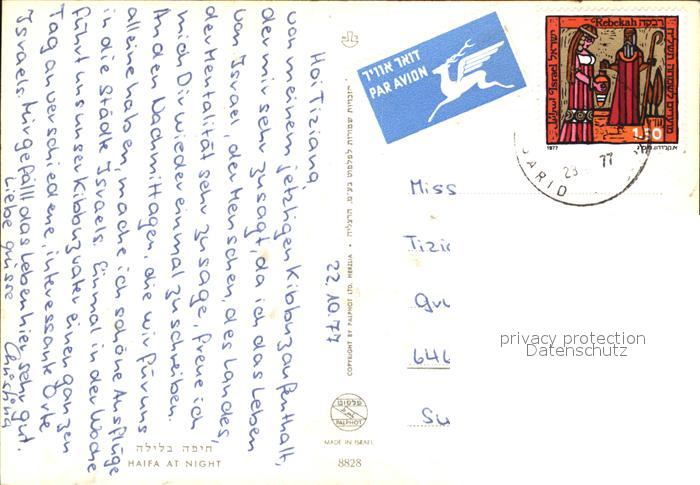 Hoi Tiziana,
von meinem jetzigen Kibbuzaufenthalt,
der mir sehr zusagt, da ich das Leben
von Israel, der Menschen, des Landes,
der Mentalität sehr zusage, freue ich
mich Dir wieder einmal zu schreiben.
An den Nachmittagen, die wir für uns
alleine haben, mache ich schöne Ausflüge
in die Städte Israels. Einmal in der Woche
führt uns unser Kibbuzvater einen ganzen
Tag an verschiedene, interessante Orte
Israels. Mir gefällt das Leben hier sehr gut.
Liebe grüsse
22.10.77
חיפה בלילה
HAIFA AT NIGHT
תוצרת פלפוט בע"מ, הרצליה
COPYRIGHT BY PALPHOT LTD. HERZLIA
פלפוט
PALPHOT
MADE IN ISRAEL
8828
דואר אוויר
PAR AVION
Rebekah רבקה
ישראל Israel
1.50
1977
23 77
Miss
Tizi
646
Su
privacy protection
Datenschutz